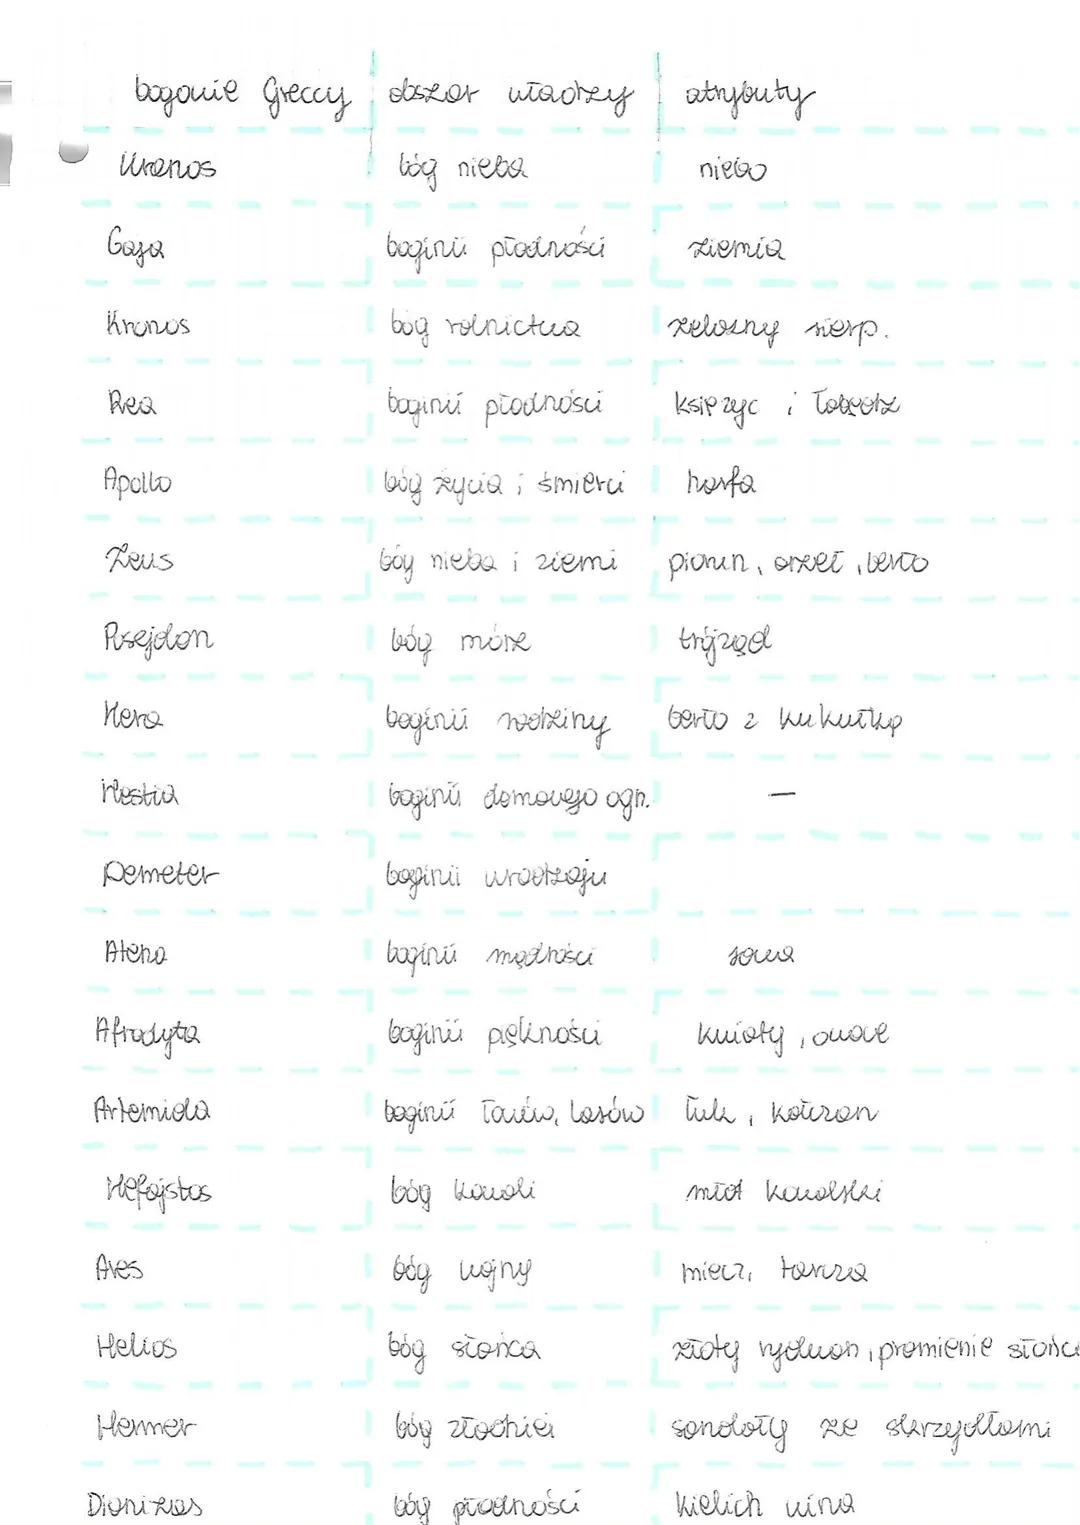 bogowie Greccy obszar władzy atrybuty
Uranos bóg nieba niebo
Gaja boginii płodności ziemia
Kronos bóg rolnictwa żelazny sierp.
Rea boginii płodności księżyc i łabędź
Apollo bóg życia i śmierci harfa
Zeus bóg nieba i ziemi piorun, orzeł, berło
Posejdon bóg mórz trójząd
Hera boginii rodziny berło z kukułką
Hestia boginii domowego ogn. —
Demeter boginii urodzaju
Atena boginii mądrości sowa
Afrodyta boginii piękności kwiaty, owoce
Artemida boginii łowów, lasów łuk, kołczan
Hefajstos bóg kowali młot kowalski
Ares bóg wojny miecz, tarcza
Helios bóg słońca złoty rydwan, promienie słońca
Hermer bóg złodziei sandały ze skrzydłami
Dionizos bóg płodności kielich wina